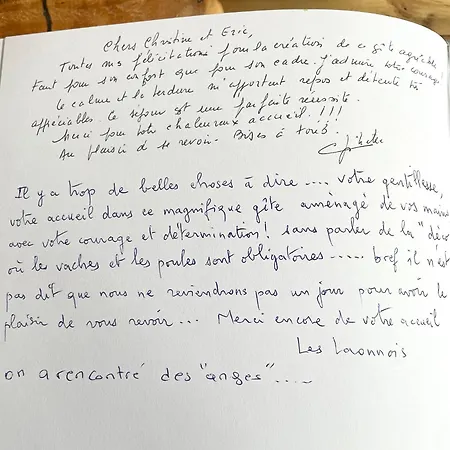 Chers Christine et Eric,
Toutes mes félicitations pour la création de ce gîte agréable
tant pour son confort que pour son cadre. J'admire votre courage!
Le calme et la verdure m'apportent repos et détente très
appréciables. Le séjour est une parfaite réussite.
Merci pour votre chaleureux accueil !!!
Au plaisir de se revoir. Bises à tous!
Il y a trop de belles choses à dire .... votre gentillesse,
votre accueil dans ce magnifique gîte aménagé de vos mains
avec votre courage et détermination! sans parler de la "déco"
où les vaches et les poules sont obligatoires ..... bref il n'est
pas dit que nous ne reviendrons pas un jour pour avoir le
plaisir de vous revoir ... Merci encore de votre accueil
Les Laonnois
on a rencontré des "anges" ....